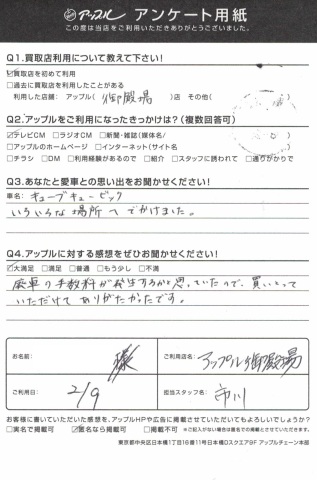 アップル アンケート用紙
この度は当店をご利用いただきありがとうございました。
Q1.買取店利用について教えて下さい!
☑買取店を初めて利用
□過去に買取店を利用したことがある
利用した店舗: アップル(御殿場)店 その他(
Q2.アップルをご利用になったきっかけは?(複数回答可)
☑テレビCM □ラジオCM □新聞・雑誌(媒体名/
□アップルのホームページ □インターネット(サイト名
□チラシ □DM □利用経験があるので □紹介 □スタッフに誘われて □通りがかりで
Q3.あなたと愛車との思い出をお聞かせください!
車名: キューブキュービック
いろいろな場所へでかけました。
Q4.アップルに対する感想をぜひお聞かせください!
☑大満足 □満足 □普通 □もう少し □不満
廃車の手数料が発生するかと思っていたので、買いとって
いただけてありがたかったです。
お名前: 様
ご利用店名: アップル御殿場
ご利用日: 2/9
担当スタッフ名: 市川
お客様に書いていただいた感想を、アップルHPや広告に掲載させていただいてもよろしいでしょうか?
□実名で掲載可 ☑匿名なら掲載可 □掲載不可 ※ご記入がない場合は掲載での掲載とさせていただきます。
東京都中央区日本橋1丁目16番11号日本橋Dスクエア9F アップルチェーン本部